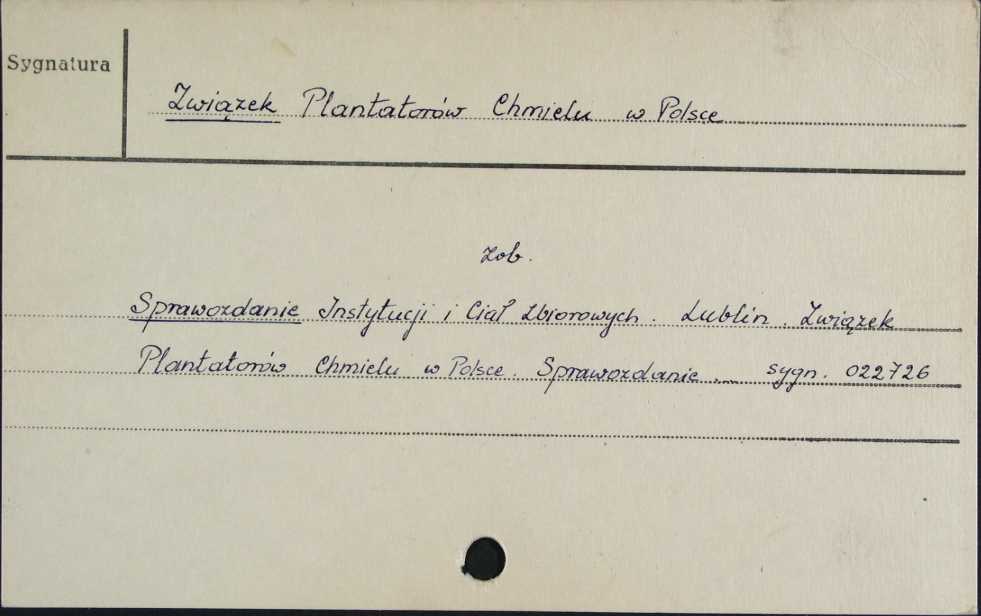 Sygnatura
Związek Plantatorów Chmielu w Polsce
zob.
Sprawozdanie Instytucji i Ciał Zbiorowych. Lublin. Związek
Plantatorów Chmielu w Polsce. Sprawozdanie ... sygn. 022726